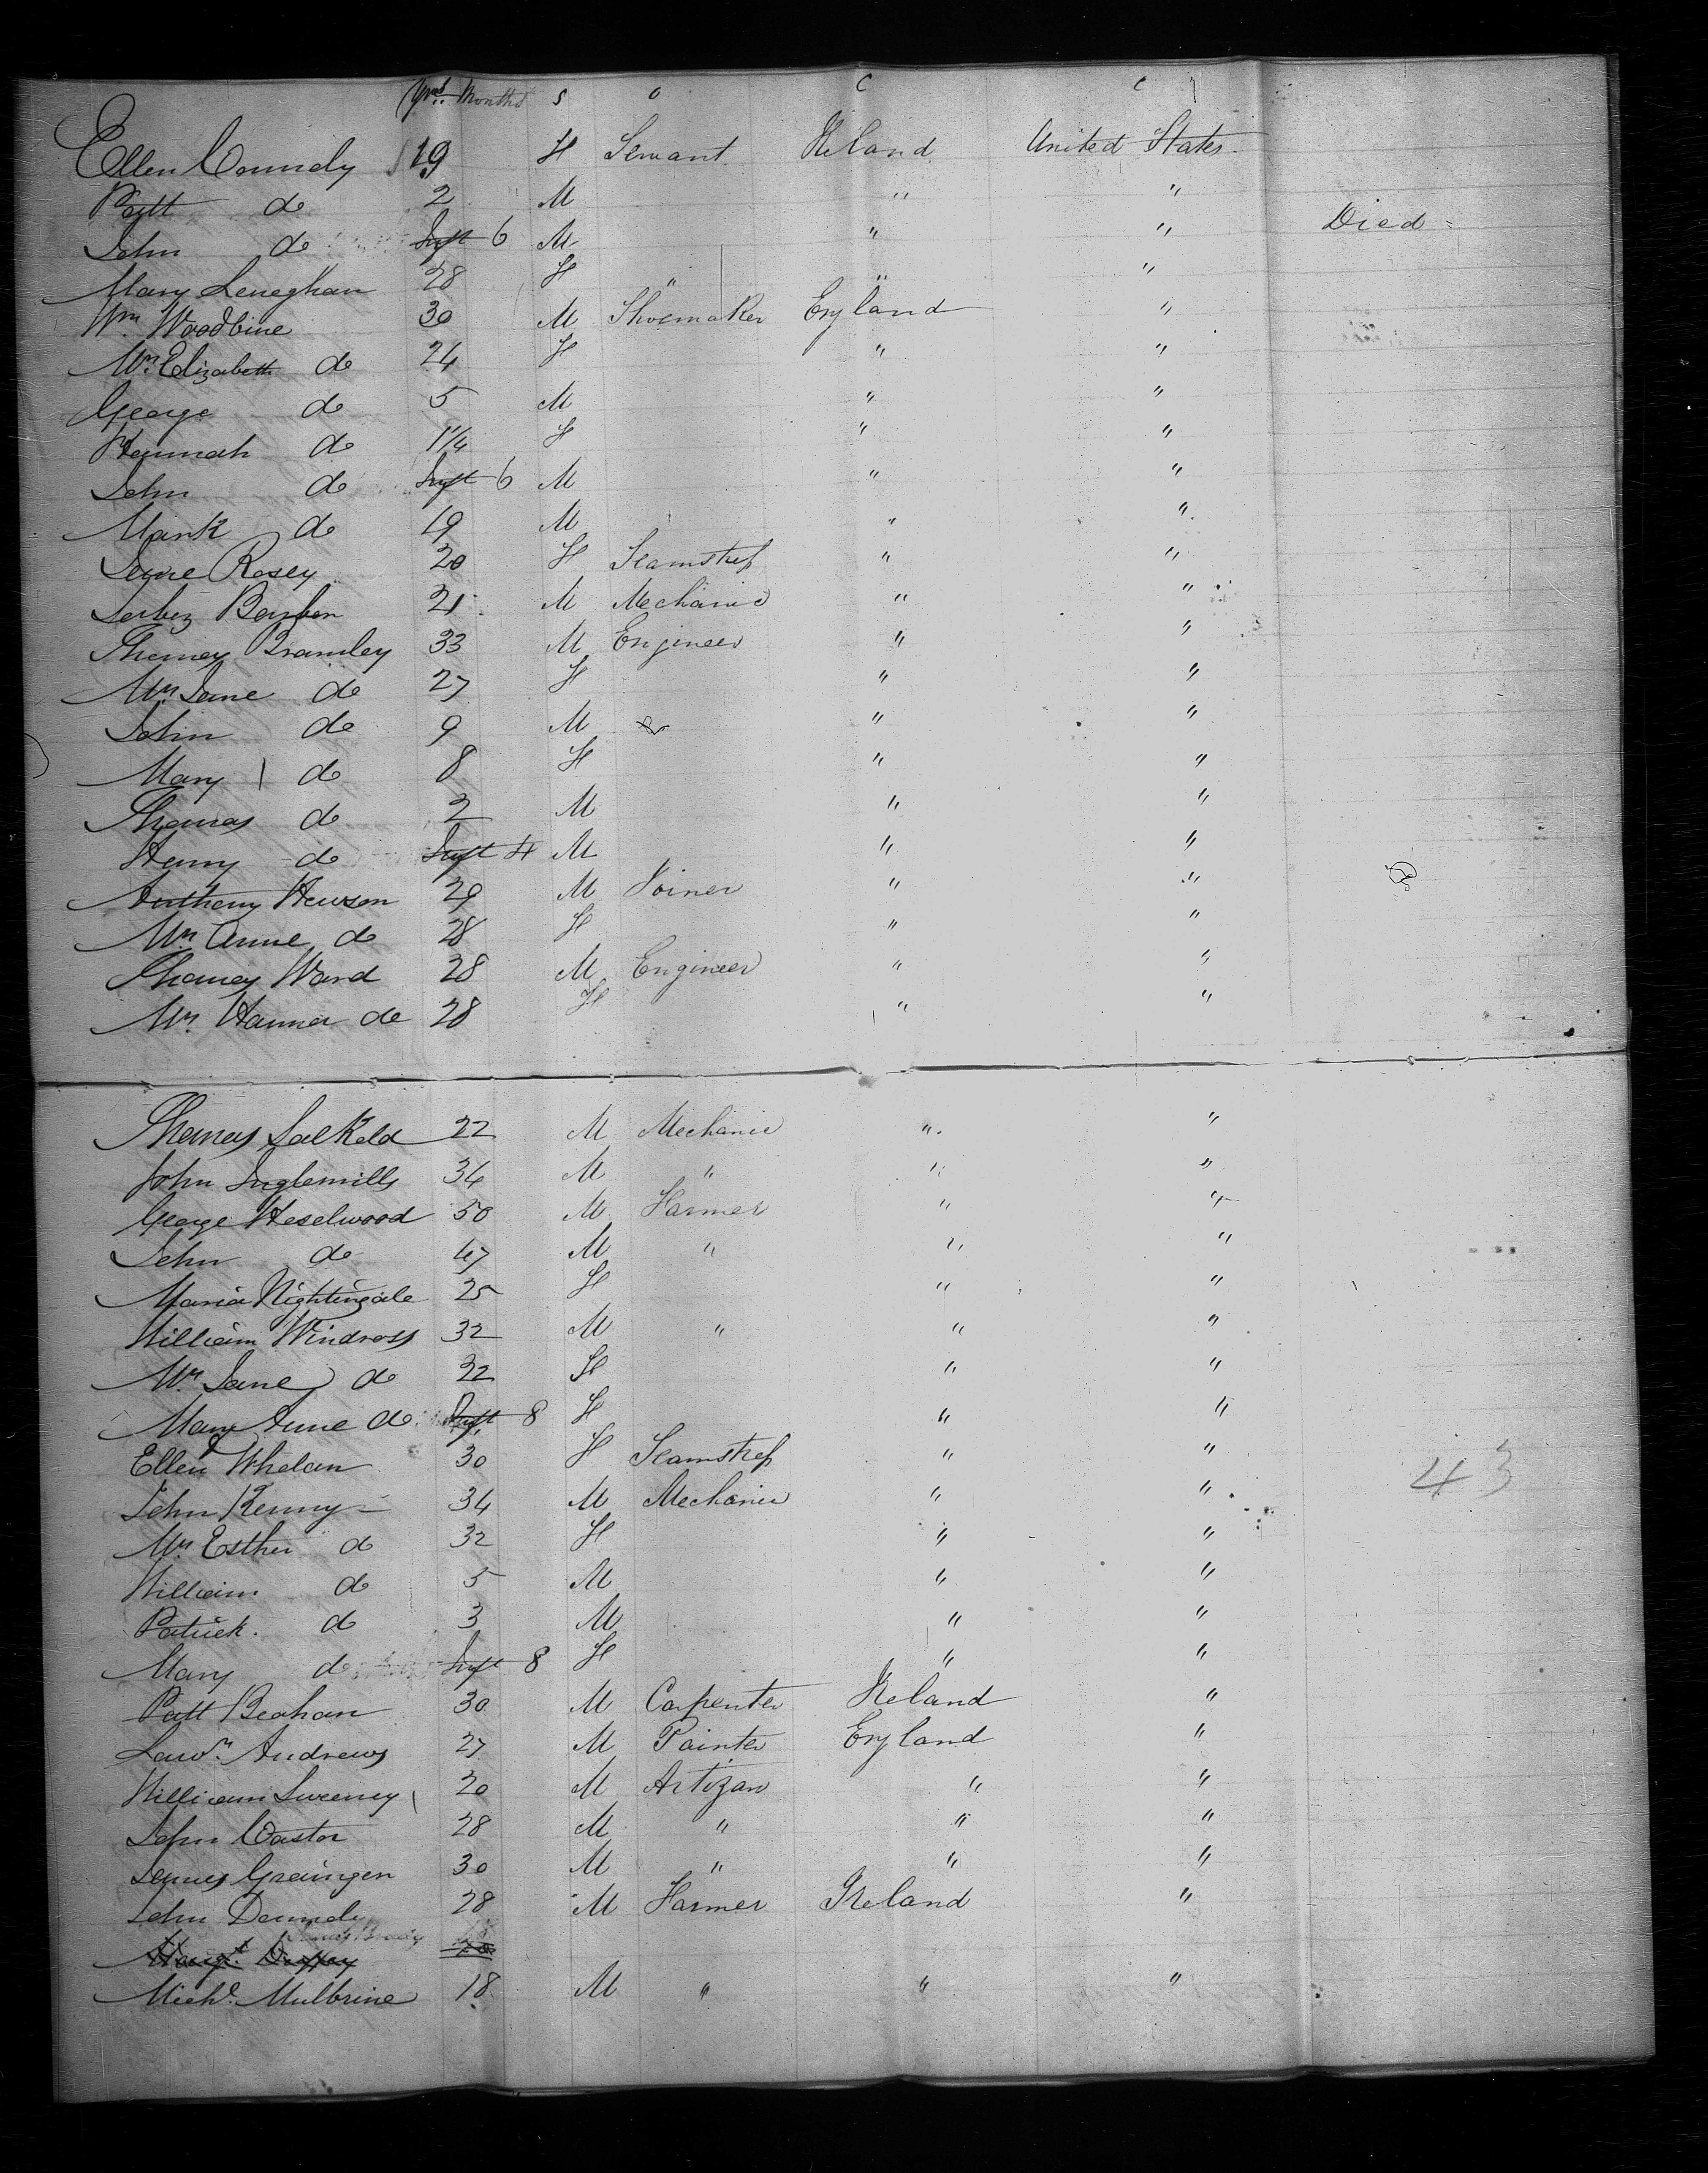 Yrs. Months S O C C
Ellen Connely 19 F Servant Ireland United States
Patt do 2 M " "
John do Inft 6 M " " Died
Mary Leneghan 28 F " " "
Wm Woodbine 30 M Shoemaker England "
Mrs Elizabeth do 24 F " "
George do 5 M " "
Hannah do 1¼ F " "
John do Inft 6 M " "
Mark do 19 M " "
Rosey 20 F Seamstress " "
21 M Mechanic " "
Thomas Bramley 33 M Engineer " "
Mrs Jane do 27 F " "
John do 9 M " "
Mary do 8 F " "
Thomas do 2 M " "
Henry do Inft 4 M " "
Anthony Hewson 29 M Joiner " "
Mrs Anne do 28 F " "
Thomas Ward 28 M Engineer " "
Mrs Hanna do 28 F " "
Thomas Salkeld 22 M Mechanic " "
John Inglemills 34 M " " "
George Heselwood 50 M Farmer " "
John do 47 M " " "
Maria Nightingale 25 F " "
William Windross 32 M " " "
Mrs Jane do 22 F " "
Mary Anne do Inft 8 F " "
Ellen Whelan 30 F Seamstress " "
43
John Kenny 34 M Mechanic " "
Mrs Esther do 32 F " "
William do 5 M " "
Patrick do 3 M " "
Mary do Inft 8 F " "
Patt Beahan 30 M Carpenter Ireland "
Lawr. Andrews 27 M Painter England "
William Sweeney 20 M Artizan " "
John Castor 28 M " " "
James Graingen 30 M " " "
John 28 M Farmer Ireland "
Michl. Mulbrine 18 M " " "